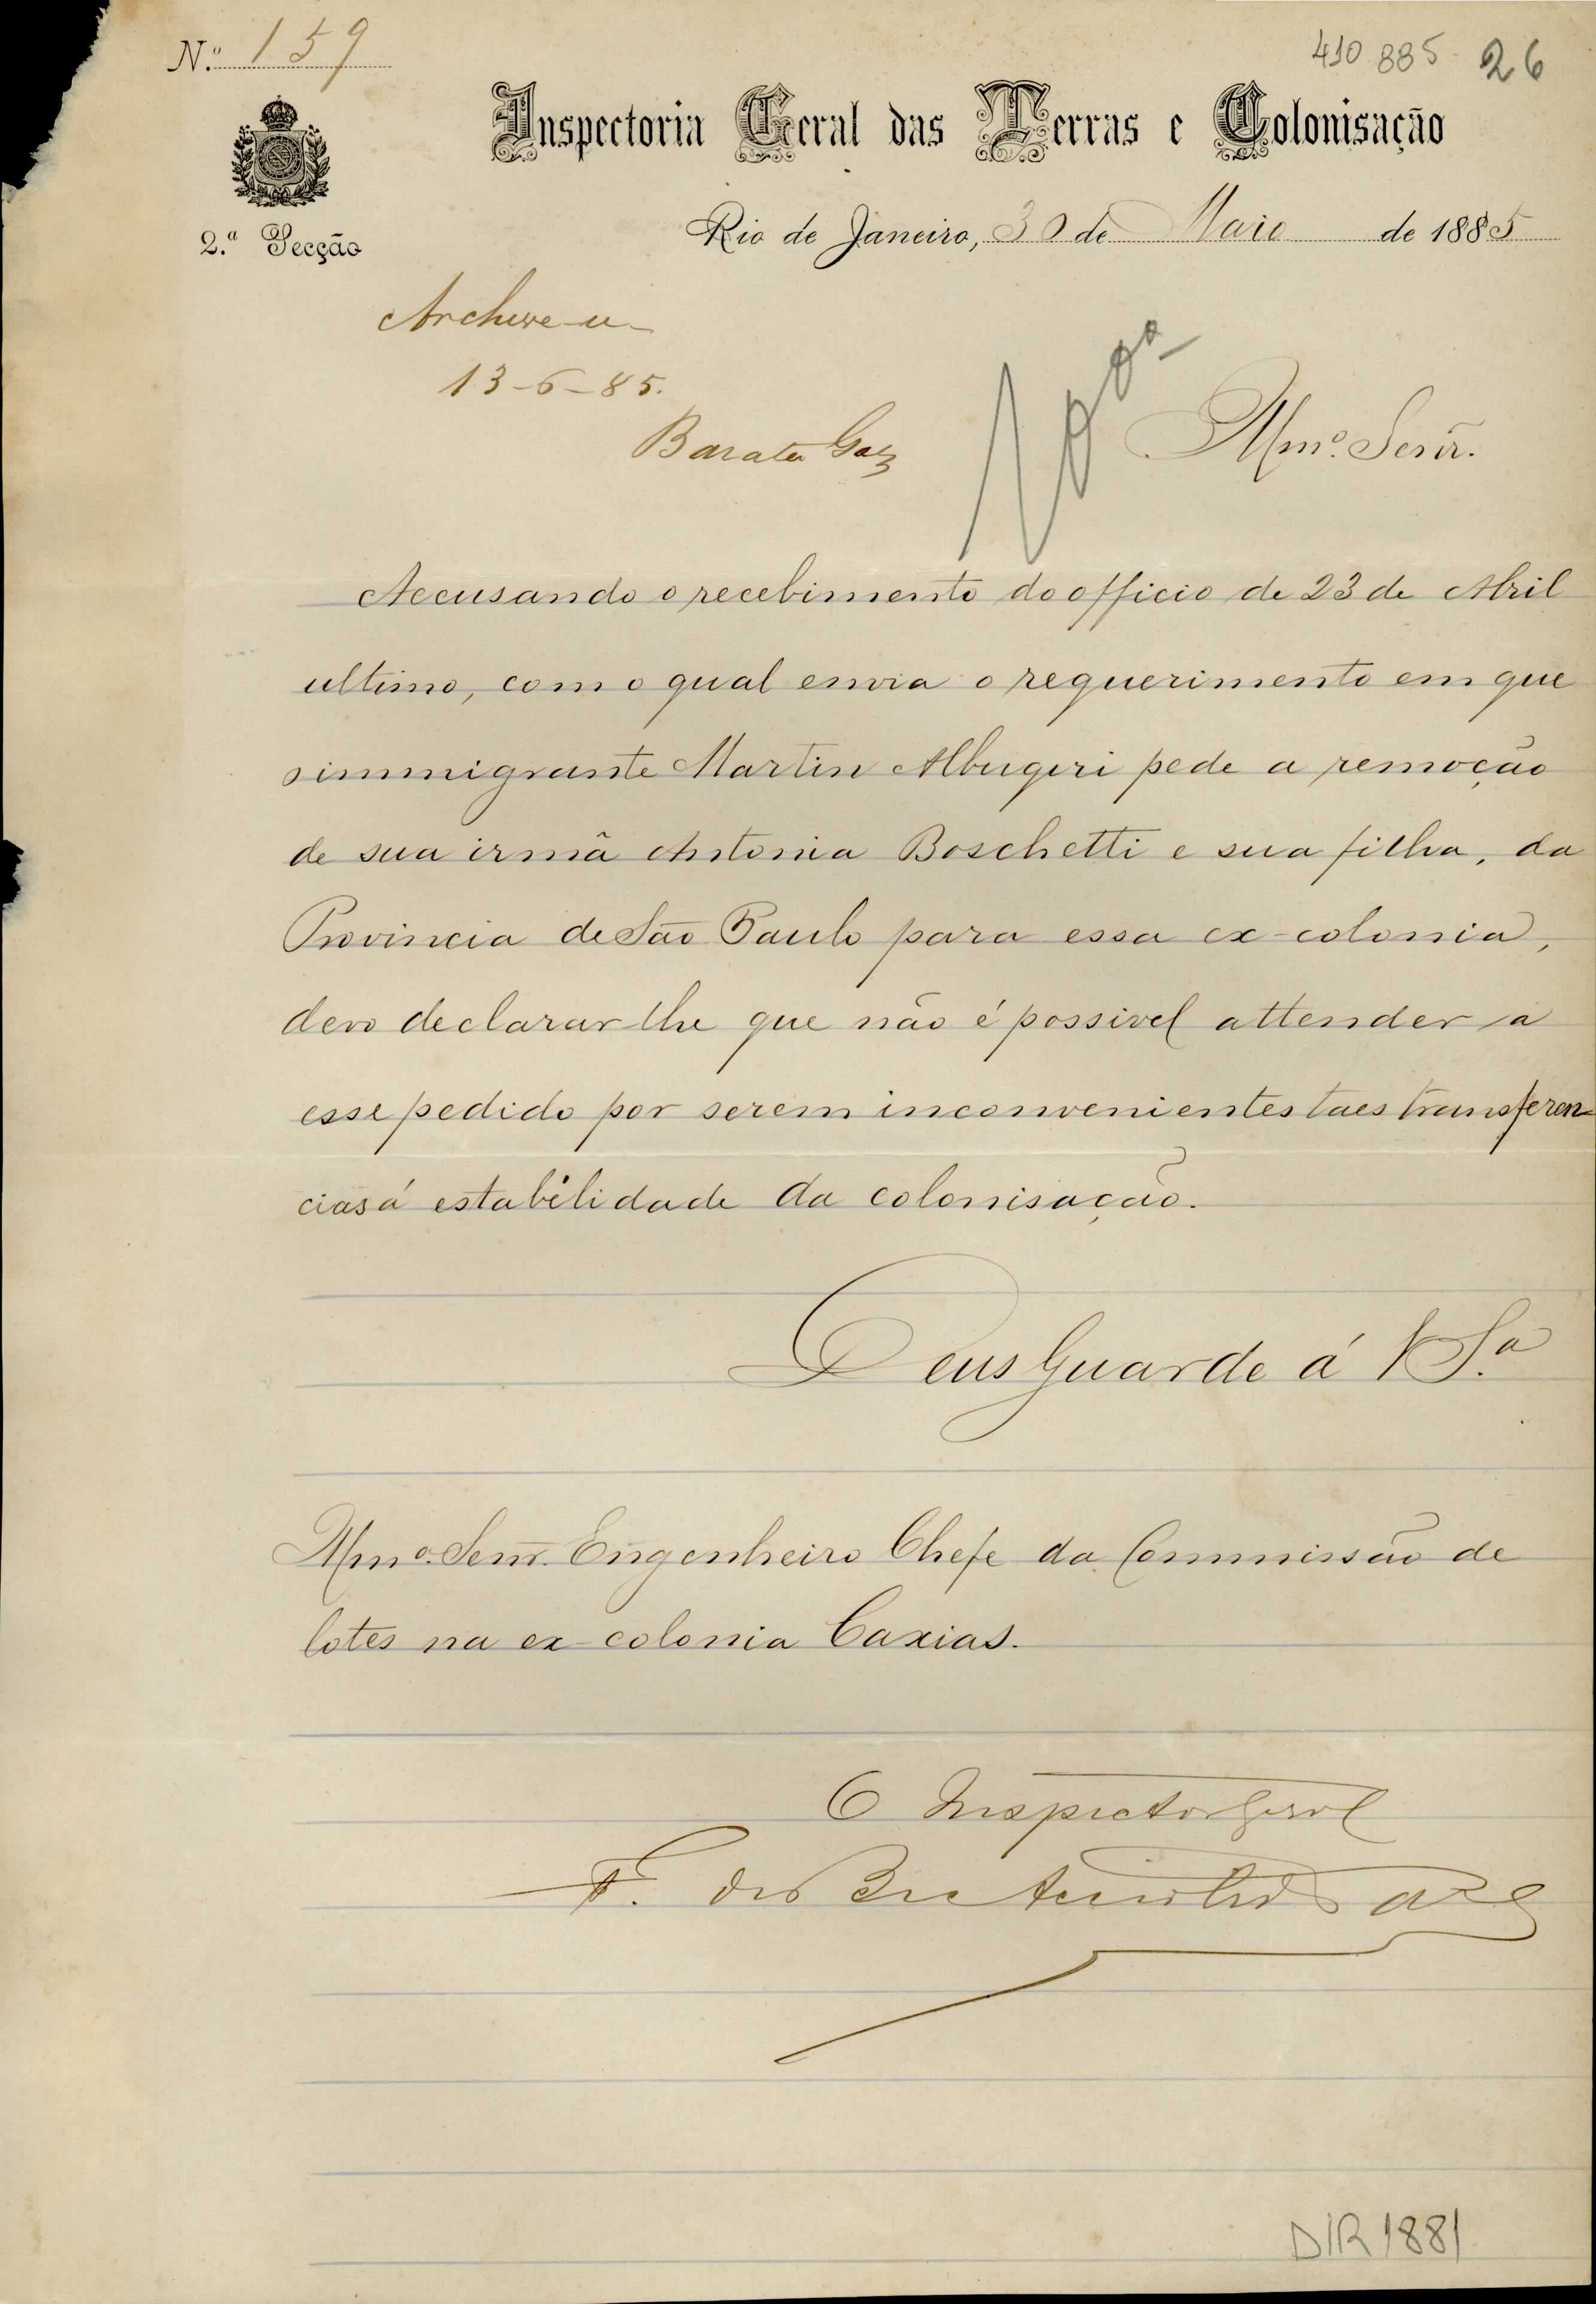 N.º 159
410 885 26
Inspectoria Geral das Terras e Colonisação
2.ª Secção
Rio de Janeiro, 30 de Maio de 1885
Archive-se
13-6-85.
Barata Goes
Illmo. Senr.
Accusando o recebimento do officio de 23 de Abril
ultimo, com o qual envia o requerimento em que
o immigrante Martin Albugeri pede a remoção
de sua irmã Antonia Boschetti e sua filha, da
Provincia de São Paulo para essa ex-colonia,
devo declarar-lhe que não é possivel attender a
esse pedido por serem inconvenientes taes transferen-
cias á estabilidade da colonisação.
Deus Guarde á V. S.ª
Illmo. Senr. Engenheiro Chefe da Commissão de
lotes na ex-colonia Caxias.
O Inspector Geral
F. de B. e Accioli de Vasc.
DIR 1881